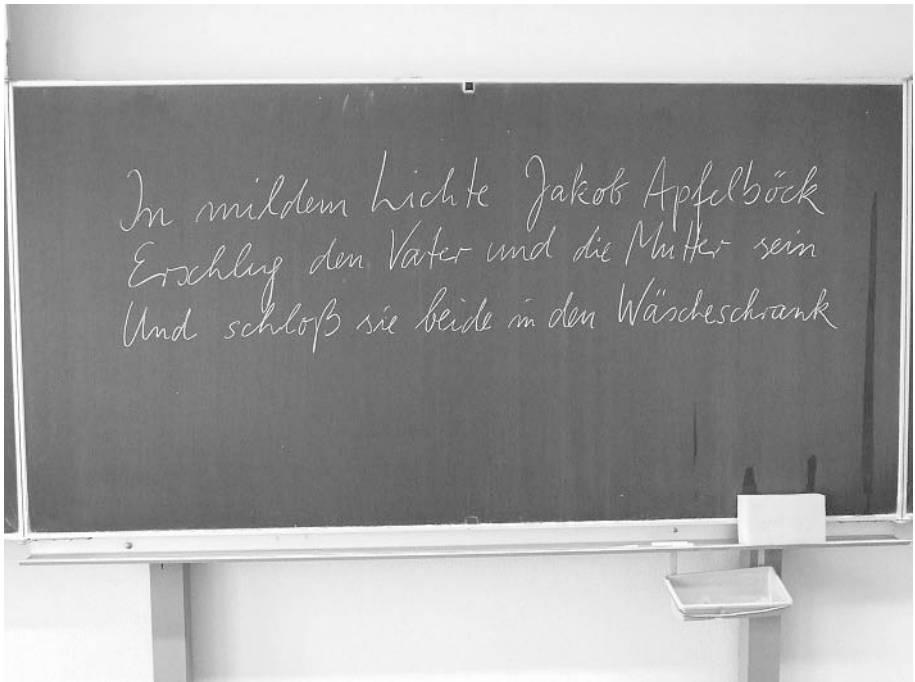 In mildem Lichte Jakob Apfelböck
Erschlug den Vater und die Mutter sein
Und schloß sie beide in den Wäscheschrank